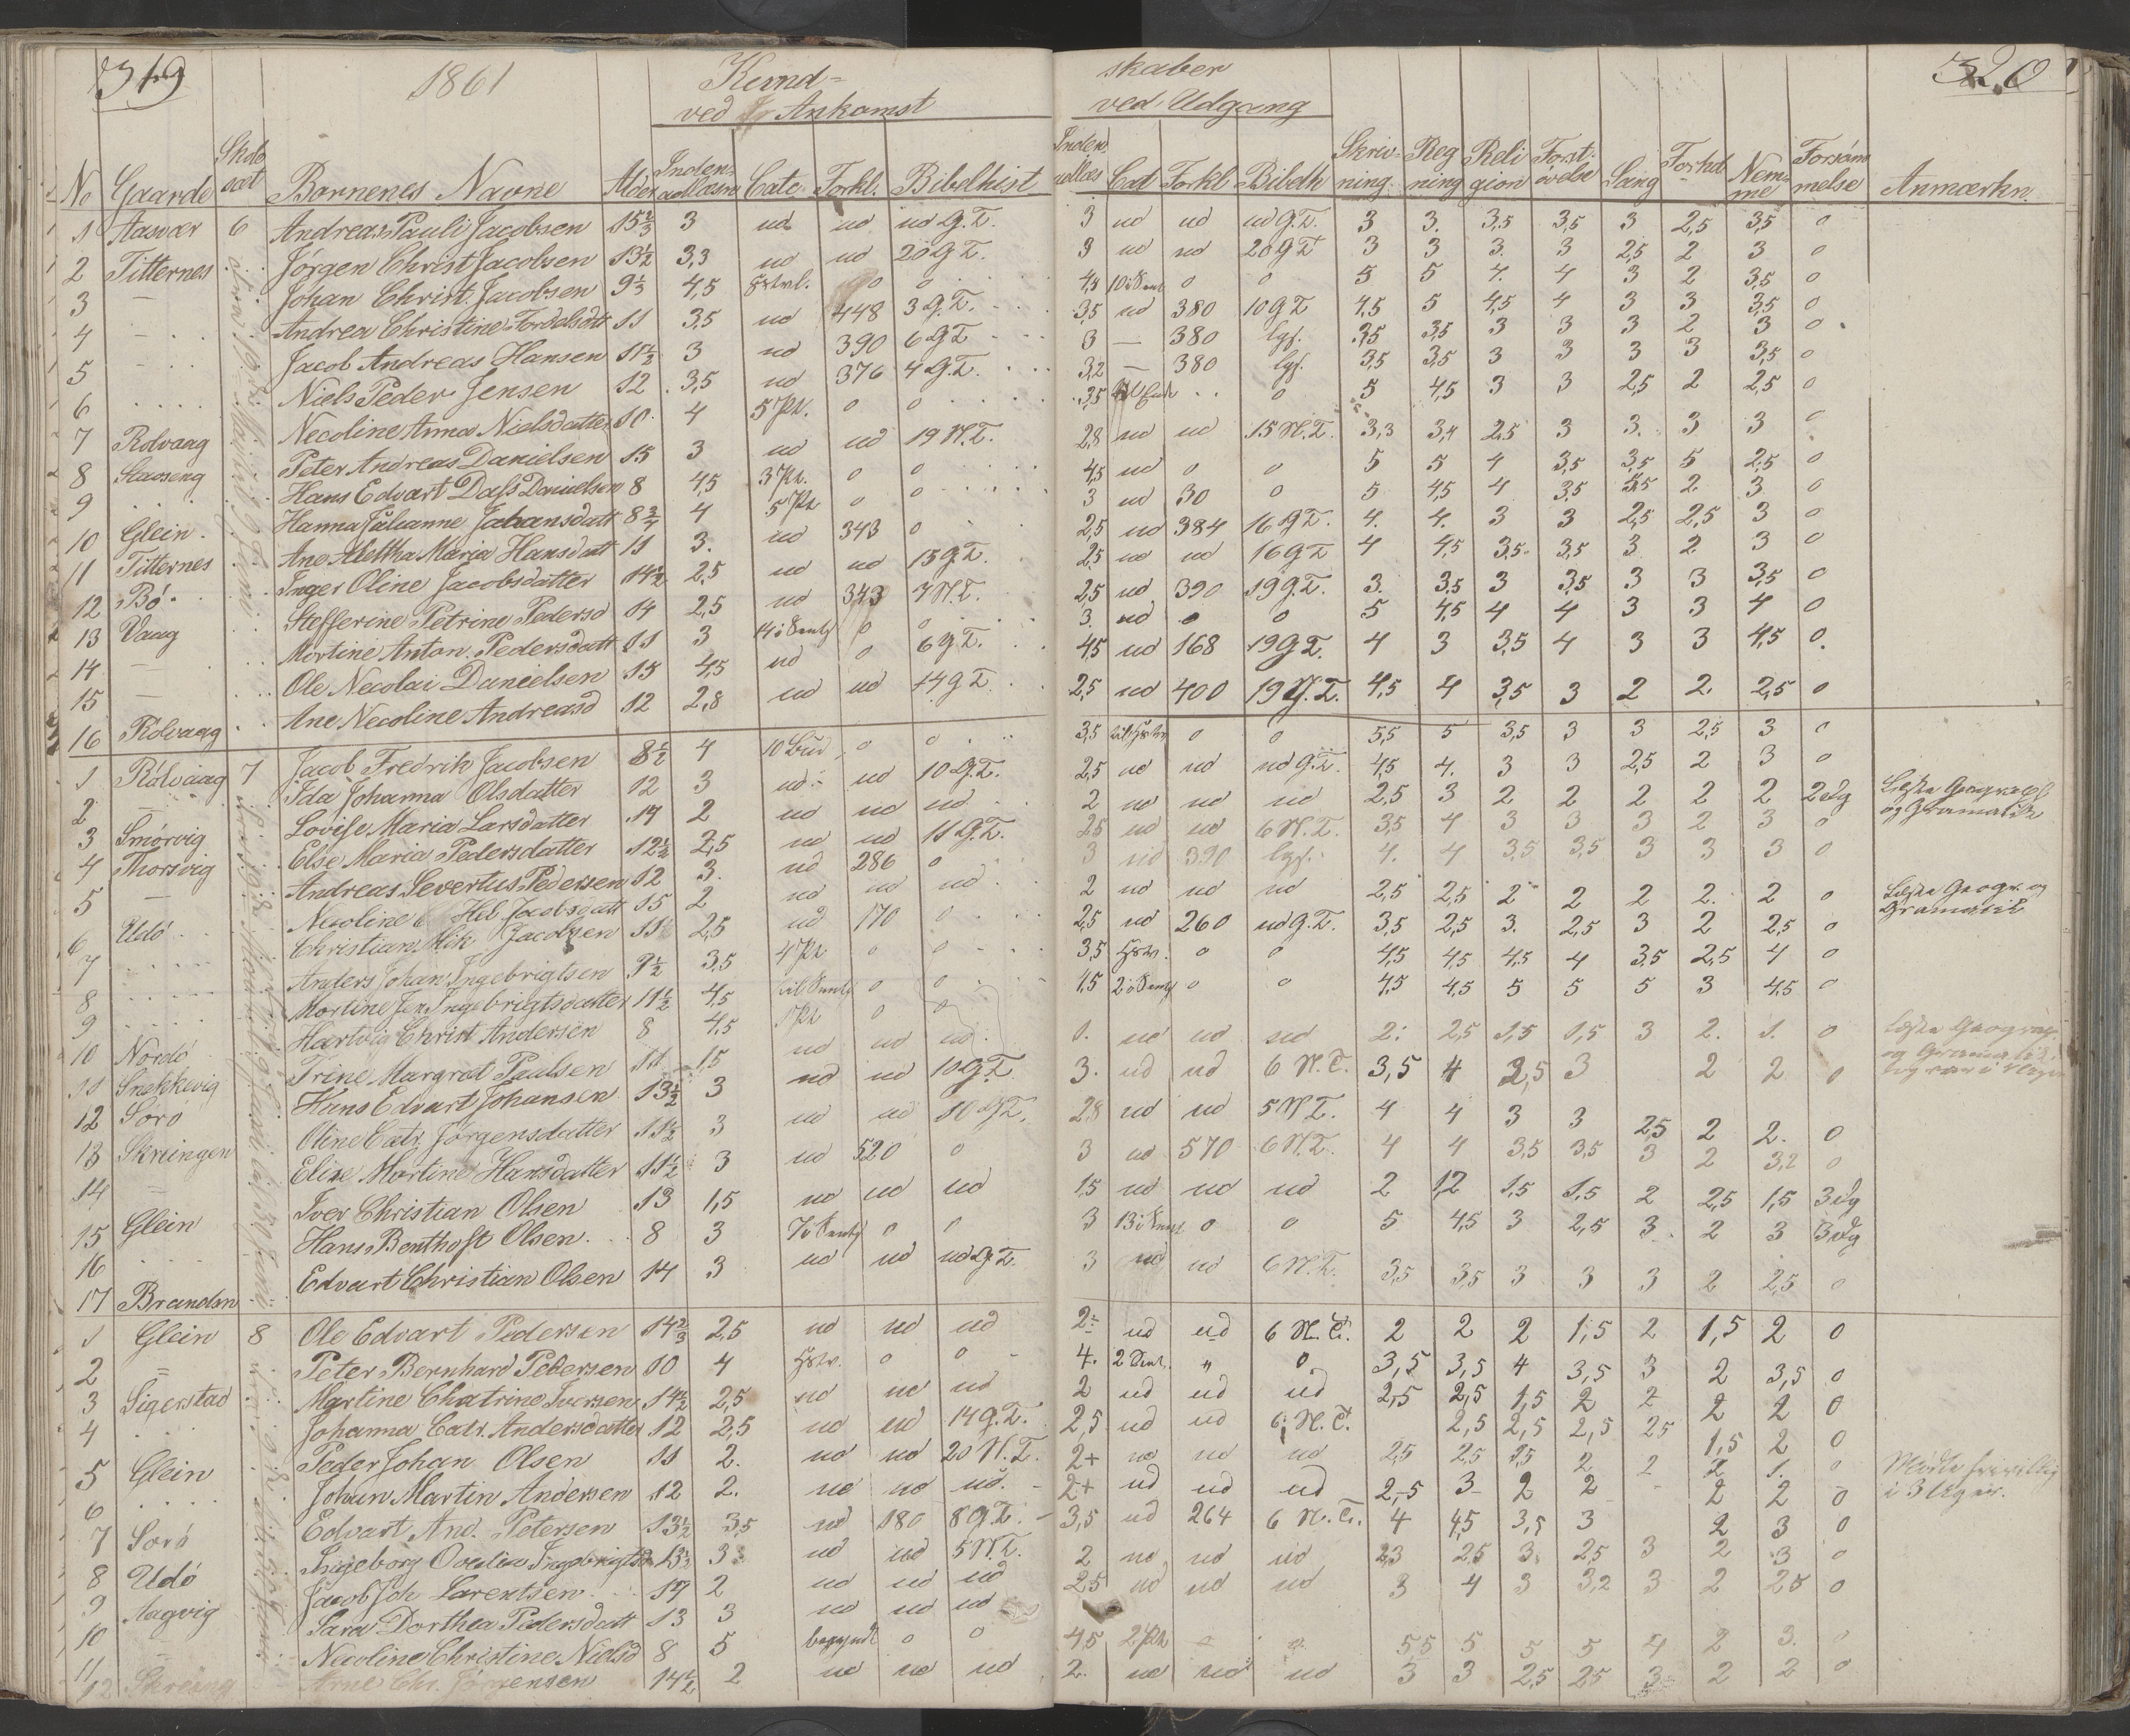 319 1861 Kund= skaber 320
ved Ankomst ved Udgang
No Gaarde Skole sæt Børnenes Navne Alder Inden- adlæsn Catc. Forkl. Bibelhist Inden adlæs Cat Forkl Bibelh Skriv- ning Reg ning Reli gion Forst. øvelse Sang Forhd Nem- me Forsøm melse Anmærkn.
1 Aasvær 6 Andreas Pauli Jacobsen 15⅔ 3 ud ud ud G.T. 3 ud ud ud G.T. 3 3. 3,5 3,5 3 2,5 3,5 0
2 Titternes Jørgen Christ Jacobsen 13½ 3,3 ud ud 20 G.T. 3 ud ud 20 G T 3 3 3. 3 2,5 2 3 0
3 — Johan Christ. Jacobsen 9⅓ 4,5 0 0 4,5 0 0 5 5 4. 4 3 2 3,5 0
4 — Andrea Christine Tordelsdtt 11 3,5 ud 448 3 G.T. 3,5 ud 380 10 G T 4,5 5 4,5 4 3 3 3,5 0
5 Jacob Andreas Hansen 11½ 3 ud 390 6 G T 3 — 380 lgf. 3,5 3,5 3 3 3 2 3 0
6 Niels Peder Jensen 12 3,5 ud 376 4 G.T. 3,2 — 380 lgf. 3,5 3,5 3 3 3 3 3,5 0
7 Rolvaag Necoline Anna Nielsdatter 10 4 5 Pt. 0 0 3,5 0 5 4,5 3 3 2,5 2 2,5 0
8 Stavseng Peter Andreas Danielsen 15 3 ud ud 19 N.T. 2,8 ud ud 15 N.T. 3,3 3,4 2,5 3 3. 3 3 0
9 Hans Edvart Dass Danielsen 8 4,5 3 Pt. 0 0 4,5 ud 0 0 5 5 4 3,5 3,5 5 2,5 0
10 Glein. Hanna Johanne Johansdatt 8¾ 4 5 Pt 0 0 3 ud 30 0 5 4,5 4 3,5 3,5 2 3 0
11 Titternes Ane Meltha Maria Hansdatt 11 3. ud 343 0 2,5 ud 384 16 G T. 4. 4. 3 3 2,5 2,5 3 0
12 Bø. Inger Oline Jacobsdatter 14½ 2,5 ud ud 15 G.T. 2,5 ud ud 16 G T 4 4,5 3,5 3,5 3 2 3 0
13 Vaag Stefferine Petrine Pedersd 14 2,5 ud 343 7 N.T. 2,5 ud 390 19 G.T. 3. 3,5 3 3,5 3 3 3,5 0
14 — Mortine Anton. Pedersdatt 11 3 0 0 3. ud 0 0 5 4,5 4 4 3 3 4 0
15 — Ole Necolai Danielsen 15 4,5 ud 0 6 G.T. 4,5 ud 168 19 G T. 4 3 3,5 4 3 3 4,5 0.
16 Rolvaag Ane Necoline Andreasd 12 2,8 ud ud 14 G T. 2,5 ud 400 19 N.T. 4,5 4 3,5 3 2 2. 2,5 0
1 Rølvaag 7 Jacob Fredrik Jacobsen 8½ 4 10 Bud 0 0 3,5 0 0 5,5 5 3,5 3 3 2,5 3 0
2 — Ida Johanna Olsdatter 12 3 ud ud 10 G.T. 2,5 ud ud ud G.T. 4,5 4. 3 3 2,5 2 3 0
3 Smørvig Lovise Maria Larsdatter 14 2 ud ud ud 2 ud ud ud 2,5 3 2 2 2 2 2 2 dg Læste Geographi og Gramatik
4 Thorsvig Else Maria Pedersdatter 12½ 2,5 ud ud 11 G.T. 2,5 ud ud 6 N.T. 3,5 4 3 3 3 2 3 0
5 — Andreas Severtus Pedersen 12 3. ud 286 0 3 ud 390 lgf. 4. 4 3,5 3,5 3 3 3 0
6 Udø Necoline Hel Jacobsdatt 15 2 ud ud ud 2 ud ud ud 2,5 2,5 2 2 2 2. 2 0 Læste Geogr. og Gramatik
7 Christian Mik Jacobsen 11 2,5 ud 170 0 2,5 ud 260 ud G.T. 3,5 2,5 3. 2,5 3 2 2,5 0
8 Anders Johan Ingebrigtsen 9½ 3,5 4 Pt 0 0 3,5 0 0 4,5 4,5 4,5 4 3,5 2,5 4 0
9 Mortine Jen Ingebrigtsdatter 11½ 4,5 0 0 4,5 0 0 4,5 4,5 5 5 5 3 4,5 0
10 Nordø Hartvig Christ Andersen 8 4,5 1 Pt 0 0
11 Snekkevig Trine Margret Paulsen 14 1,5 ud ud ud 1. ud ud ud 2. 2,5 1,5 1,5 3 2. 1. 0 Læste Geograp. og Gramatik
12 Sørø Hans Edvart Johansen 13½ 3 ud ud 10 G.T. 3. ud ud 6 N.T. 3,5 4 2,5 3 2 2 0
13 Skreingen Oline Catr. Jørgensdatter 11½ 3 ud ud 10 G T. 2,8 ud ud 5 N T. 4 4 3 3 2,5 2 2. 0
14 — Elise Martine Hansdatter 11½ 3 ud 520 0 3 ud 570 6 N.T. 4 4 3,5 3,5 3 2 3,2 0
15 Glein Iver Christian Olsen 13 1,5 ud ud ud 1,5 ud ud ud 2 1,2 1,5 1,5 2 2,5 1,5 3 dg
16 Hans Benthoft Olsen 8 3 0 0 3 0 0 5 4,5 3 2,5 3. 2 3 3 dg
17 Brandsn Edvart Christian Olsen 14 3 ud ud ud G.T. 3 ud ud 6 N.T. 3,5 3,5 3 3 3 2 2,5 0
1 Glein 8 Ole Edvart Pedersen 14⅔ 2,5 ud ud ud 2- ud ud 6 N. T. 2 2 2 1,5 2 1,5 2 0
2 = Peter Bernhard Pedersen 10 4 0 0 4. " 0 3,5 3,5 4 3,5 3 2 3,5 0
3 Sigerstad Martine Chatrine Iversen 14½ 2,5 ud ud ud 2 ud ud ud 2,5 2,5 1,5 2 2 2 2 0
4 Johanna Catr. Andersdatter 12 2,5 ud ud 14 G.T. 2,5 ud ud 6 N.T. 2,5 2,5 2,5 2,5 1,5 2 0
5 Glein Peder Johan Olsen 11 2. ud ud 20 N.T. 2+ ud ud ud 2,5 2,5 1,5 2 2 2 1. 0 Mødte frivillig i 3 Uger.
6 Johan Martin Andersen 12 2. ud ud ud. 2+ ud ud ud 2,5 3 2 2 - 2 2 0
7 Sørø Edvart And. Petersen 13½ 3,5 ud 180 8 G T. 3,5 ud 264 6 N.T. 4 4,5 3,5 3 2 3 0
8 Udø Ingeborg Ovedia Ingebrigtsd 13½ 3 ud ud 5 N.T. 2 ud ud ud 2,3 2,5 3. 2,5 3 2 3 0
9 Aagvig Jacob Joh Larentsen 14 2 ud ud ud 2,5 ud ud ud 3 4 3 3,2 3 2 2,5 0
10 Sara Dorthea Pedersdatt 13 3 ud ud ud
11 Nicoline Christine Nielsd 8 5 begyndt 0 0 4,5 2 Pt 5,5 5 5 5 4 2 3. 0
12 Arne Chr. Jørgensen 14½ 2 ud ud ud 2. ud ud ud 3 3 2,5 2,5 3 2 2 0